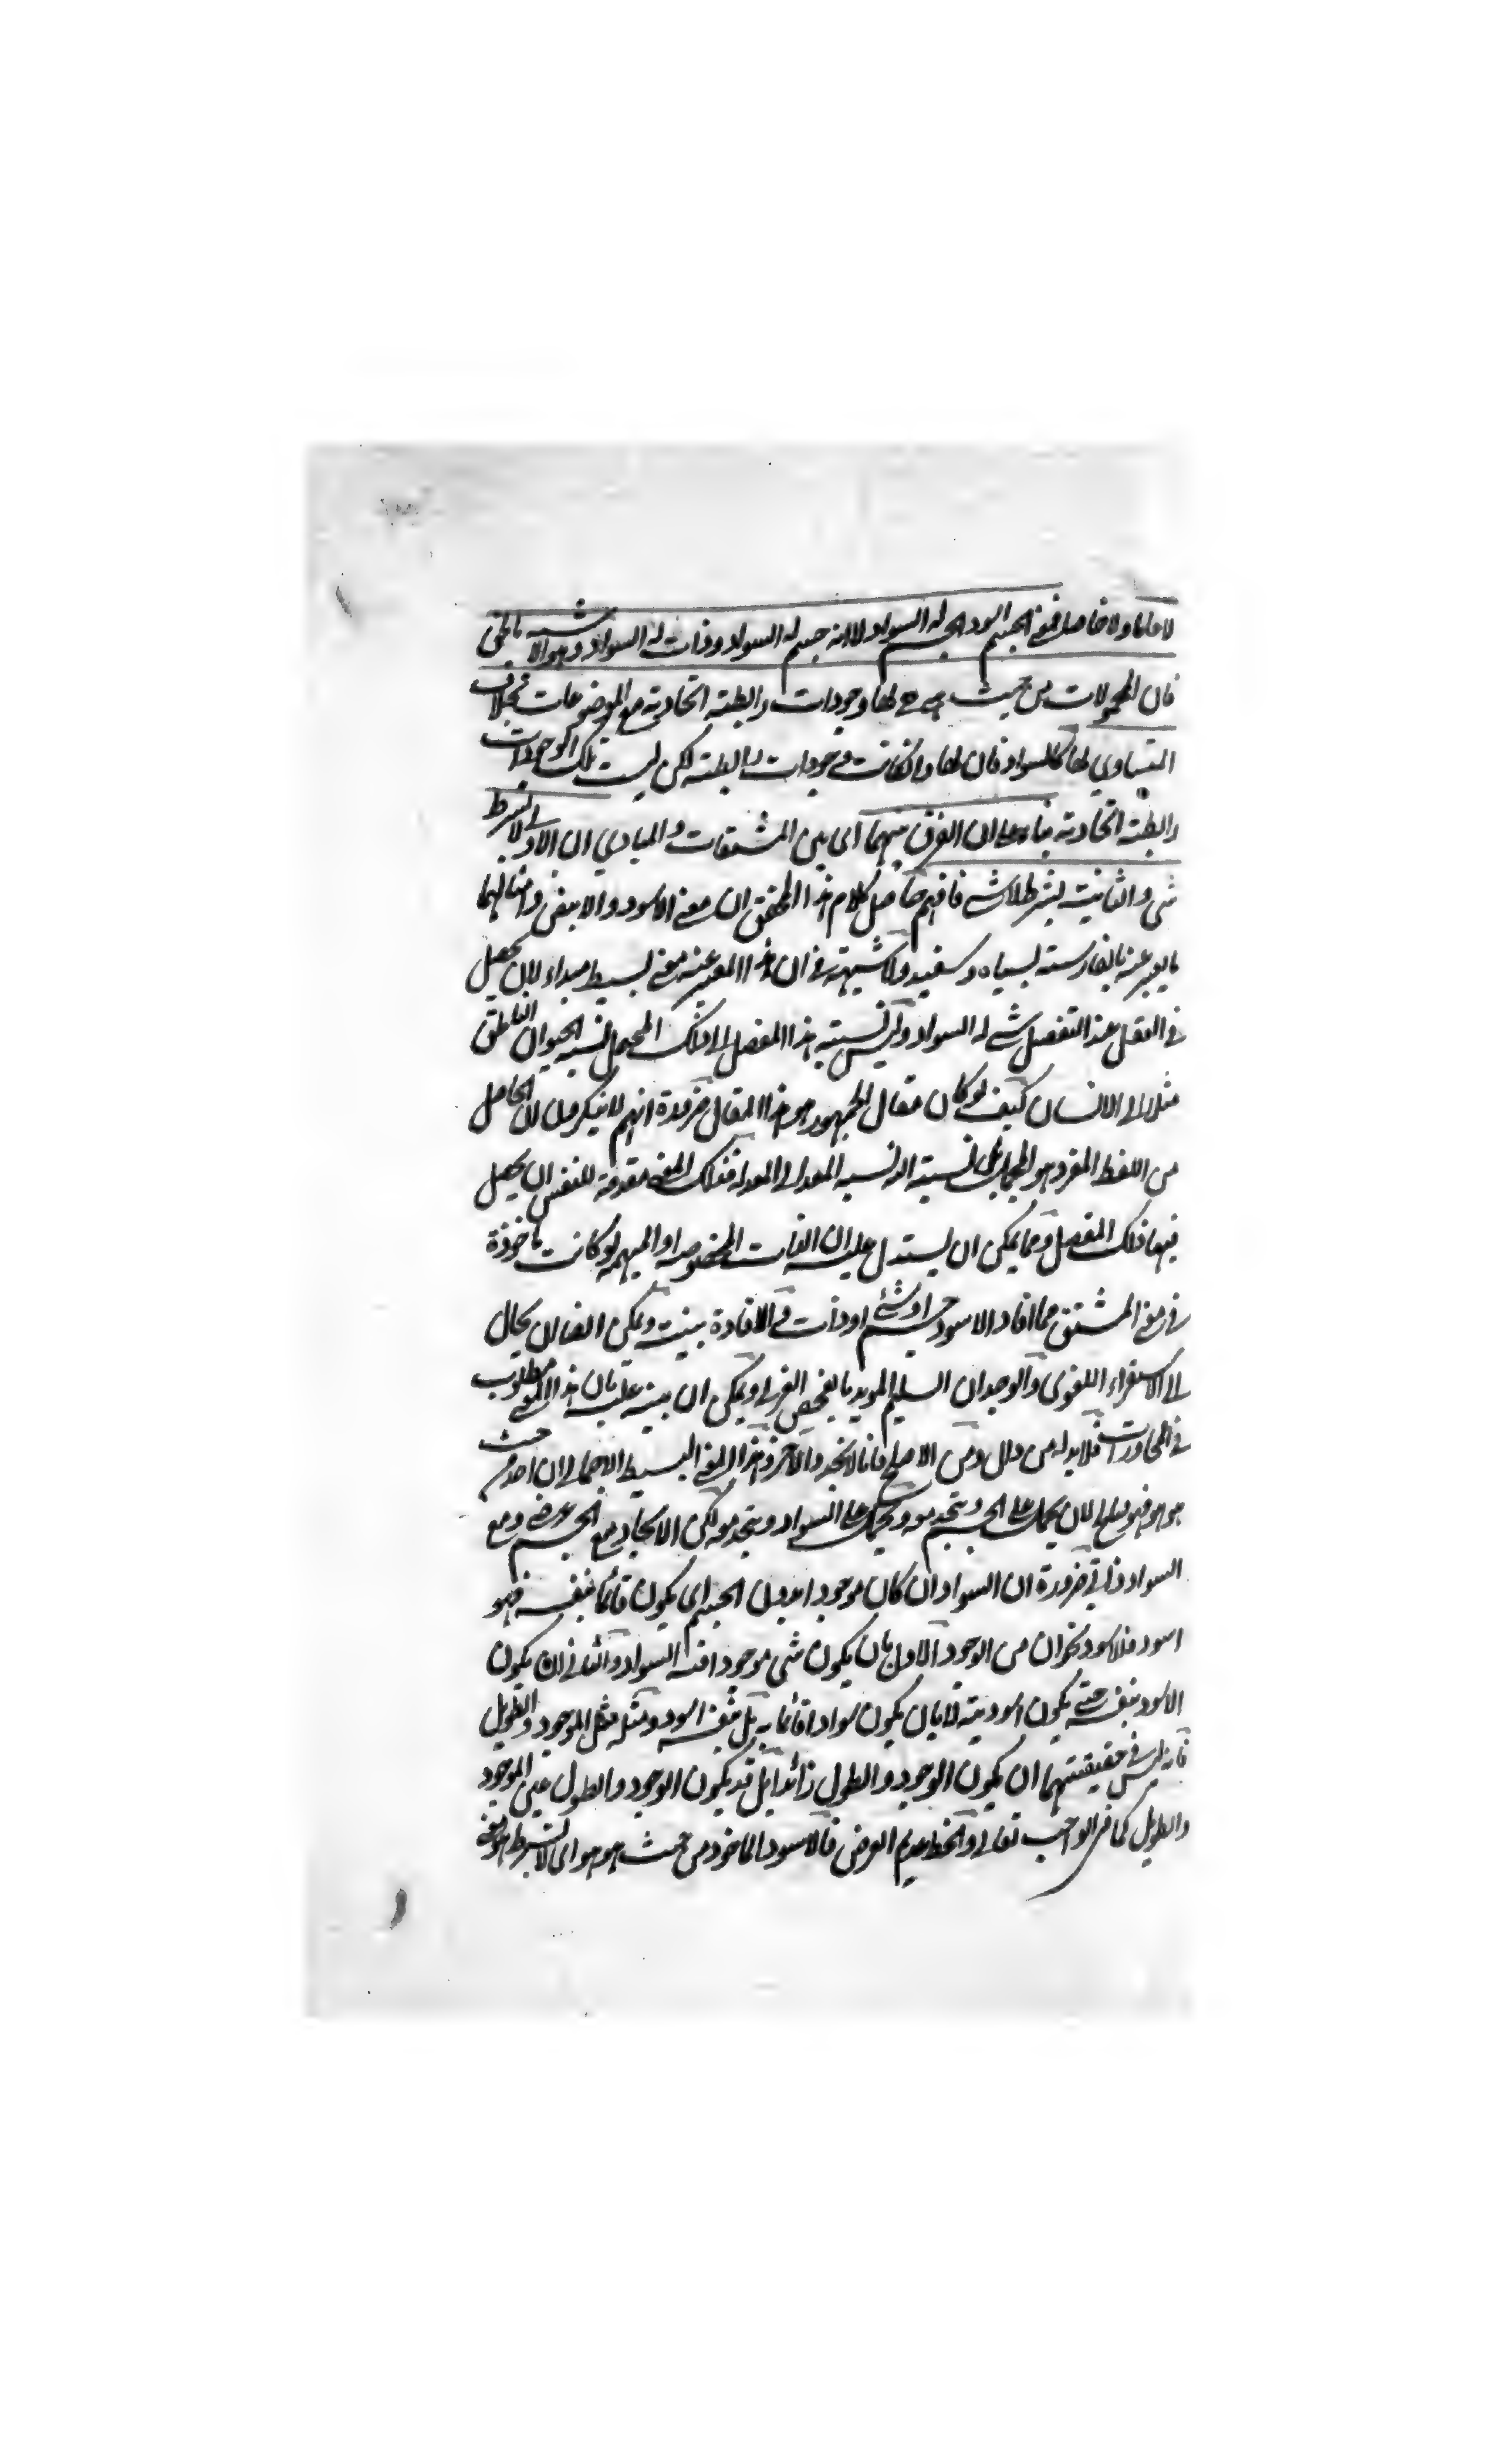 لا عاما ولا خاصا فمعنى الجسم اسود الجسم له السواد لا انه جسم له السواد وذات له السواد وهو الاشبه بالحق
فان المحمولات من حيث هي هي لها وجودات رابطية اتحادية مع الموضوعات بخلاف
المبادي لها كالسواد فان لها وانكانت وجودات رابطية لكن ليست تلك الوجودات
رابطية اتحادية بناء على ان الفرق بينهما اى بين المشتقات والمبادي ان الاولى لا بشرط
شى والثانية بشرط لا شى فافهم حاصل كلام هذا المحقق ان معنى الاسود والابيض وامثالهما
ما يعبر عنه بالفارسية بسياه وسفيد ولا شبهة فى ان هذا المعبر عنه معنى بسيط مبداء لان يحصل
فى العقل عند التفصيل شى له السواد وليس نسبة هذا المفصل الى ذلك المجمل نسبة الحيوان الناطق
مثلا الى الانسان كيف لو كان مقال الجمهور هو هذا المقال ضرورة انهم لا ينكرون ان الحاصل
من اللفظ المفرد هو المجمل بل نسبته اليه نسبة المعد الى المعد له فذلك المعنى مقدمة للنفس ان يحصل
فيها ذلك المفصل ومما يمكن ان يستدل عليه ان الذات المخصوصة او المبهمة لو كانت ماخوذة
فى معنى المشتق مما افاد الاسود جسم او شئ او ذات والافادة بينة ويمكن ايضا ان يحال
الى الاستقراء اللغوى والوجدان السليم المويد بالفحص الغريزى ويمكن ان ينبه عليه بان هذا المعنى مطلوب
فى المحاورات فلا بد له من دال ومن الاصلح فانا لا نجد والآخر هذا المعنى البسيط الاجمالى ان اخذ من حيث
هو هو فهو صالح لان يحمل على الجسم ويتحد معه ويحمل على السواد ويتحد معه لكن الاتحاد مع الجسم عرضى ومع
السواد ذاتى ضرورة ان السواد ان كان موجودا بدون الجسم اى يكون قائما بنفسه فهو
اسود فللاسود نحوان من الوجود الاول بان يكون شى موجودا فيه السواد والثانى ان يكون
الاسود بنفسه حتى يكون اسوديته لا بان يكون سوادا قائما به بل بنفسه اسود ومثله مثل الموجود والطويل
فانه ليس فى حقيقتهما ان يكون الوجود والطول زائدا بل قد يكون الوجود والطول عين الموجود
والطويل كما فى الواجب تعالى والخط عديم العرض فالاسود الماخوذ من حيث هو هو اى لا بشرط هو معنى